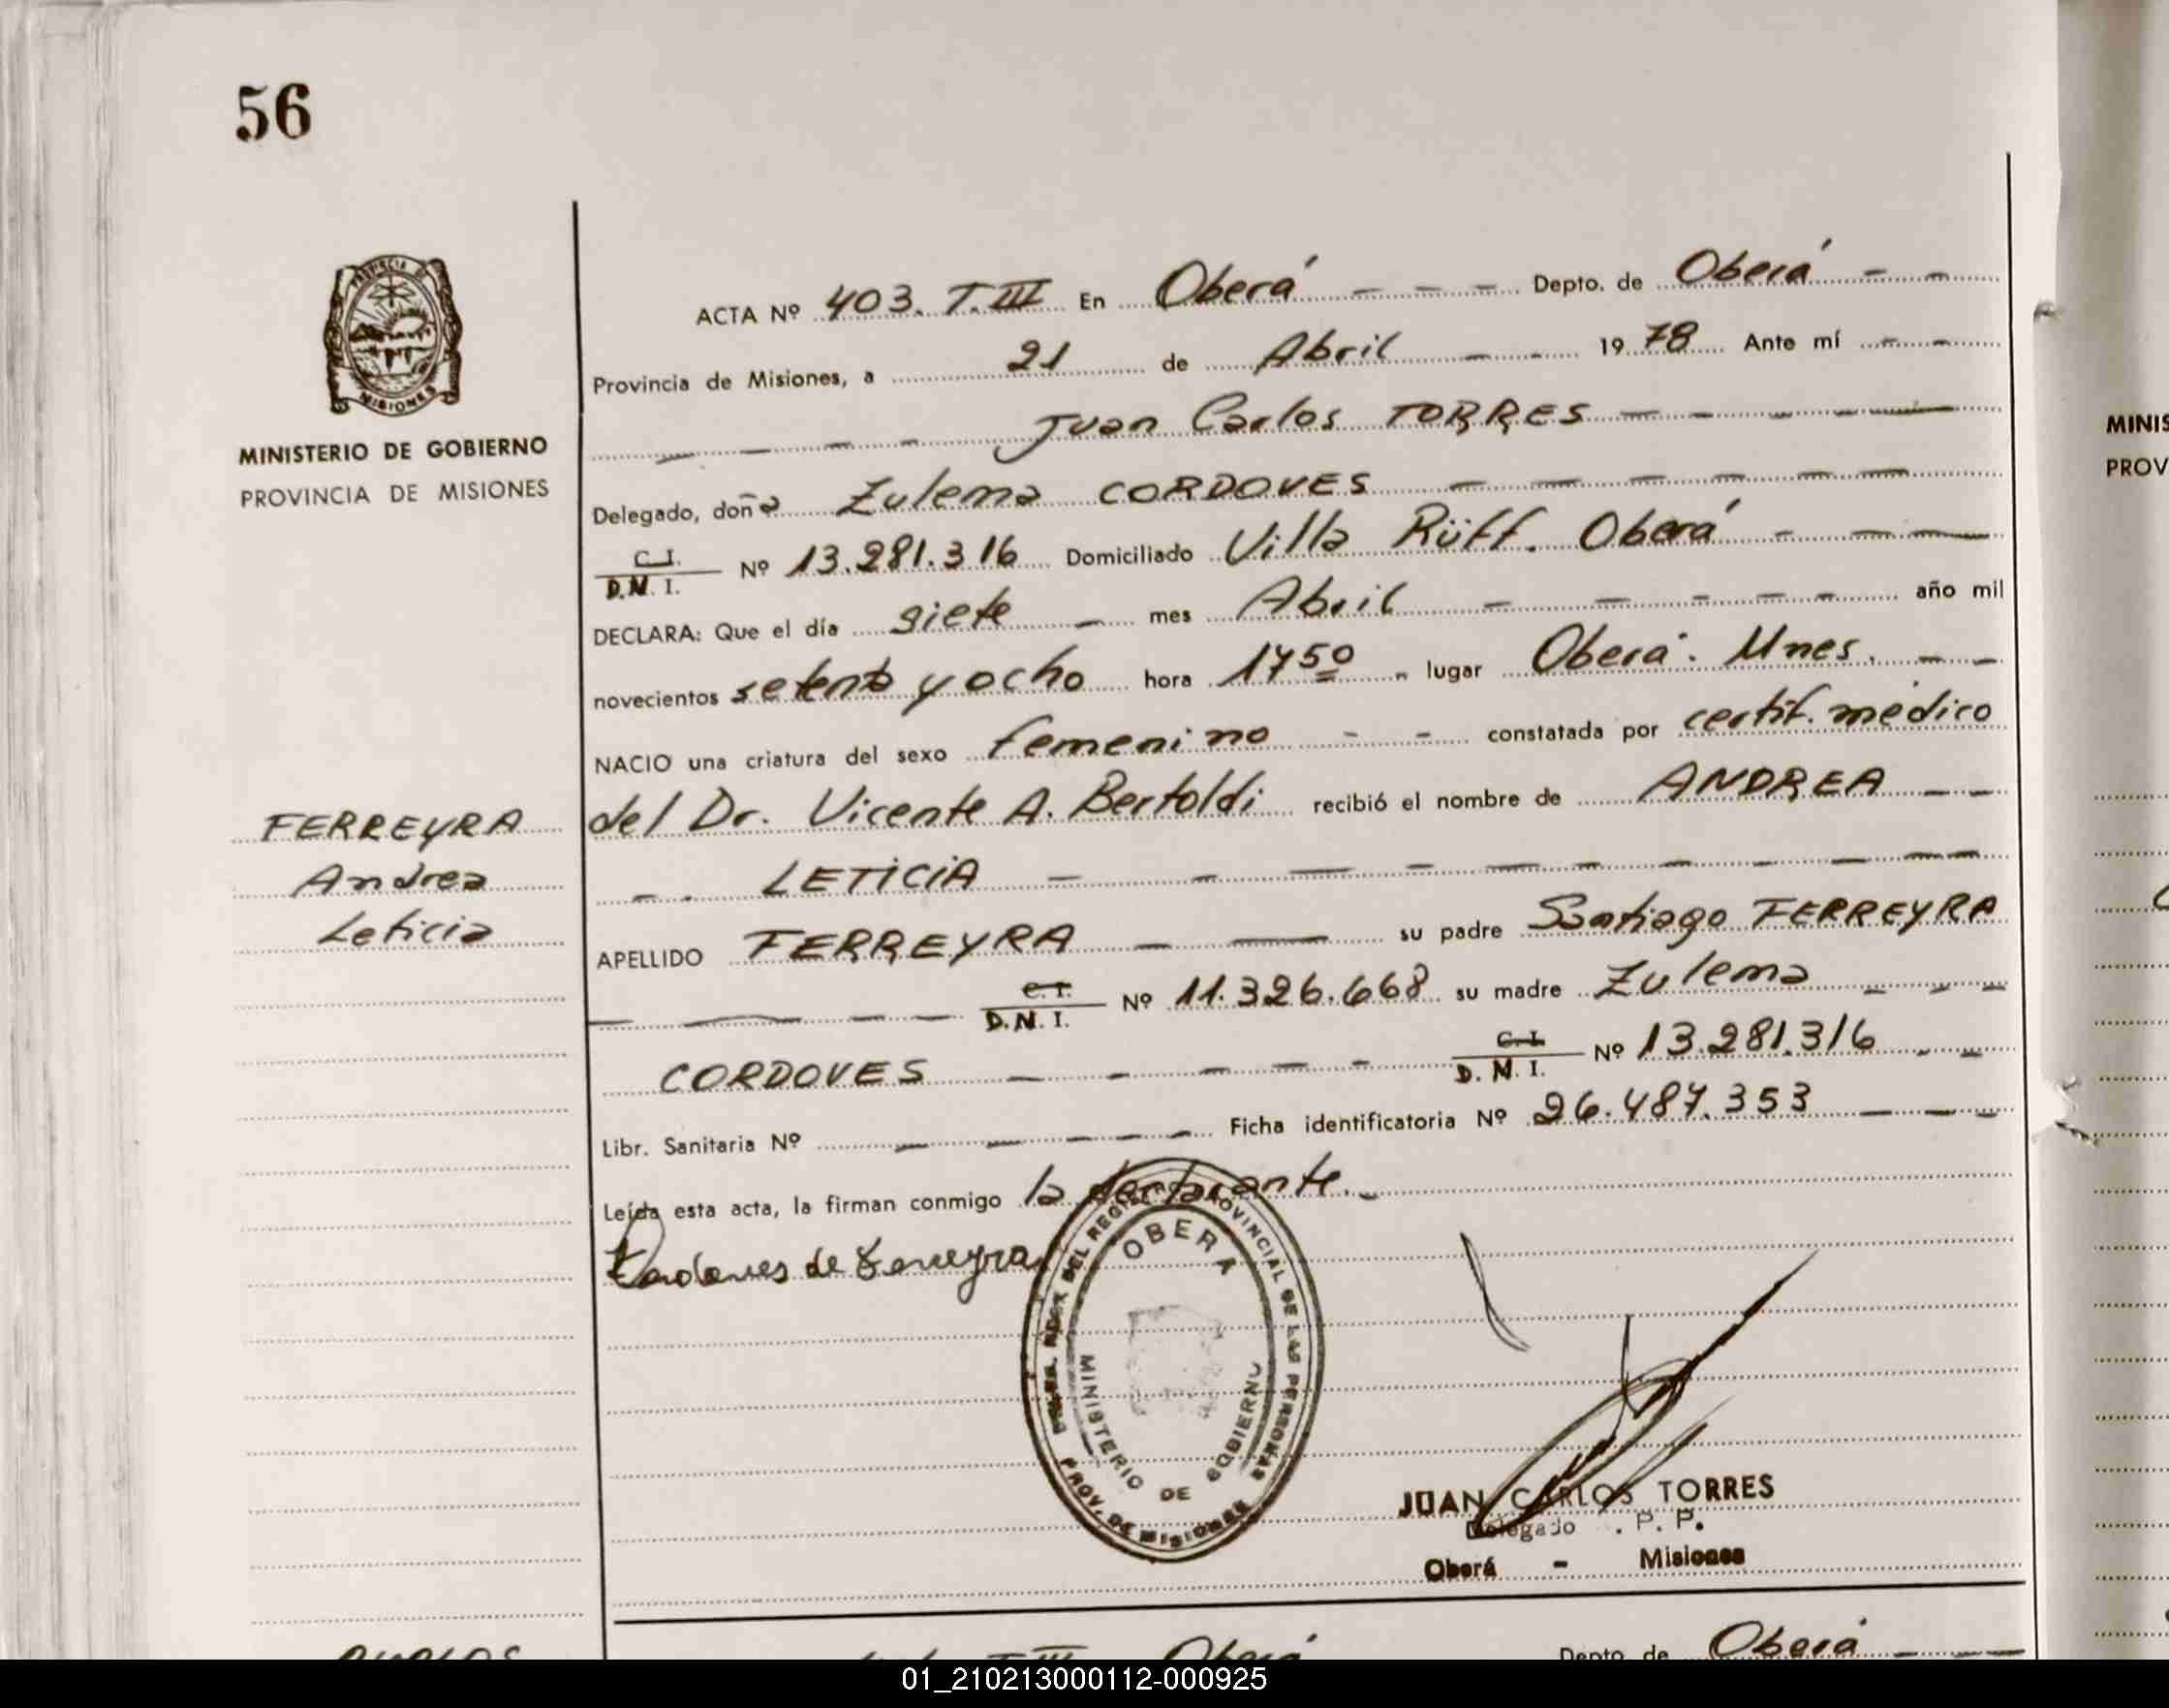 56
PROVINCIA DE
MISIONES
MINISTERIO DE GOBIERNO
PROVINCIA DE MISIONES
FERREYRA
Andrea
Leticia
ACTA Nº 403. T. III En Oberá - - - Depto. de Oberá - -
Provincia de Misiones, a 21 de Abril - - 1978 Ante mí - -
- - - - Juan Carlos TORRES - - - -
Delegado, doña Zulema CORDOVES - - - - - -
C. I.
D. N. I. Nº 13.281.316 Domiciliado Villa Rüff. Oberá - - -
DECLARA: Que el día siete - mes Abril - - - - - año mil
novecientos setenta y ocho hora 17 50 - lugar Oberá. Mnes. - -
NACIO una criatura del sexo femenino - - constatada por certif. médico
del Dr. Vicente A. Bertoldi recibió el nombre de ANDREA - -
- . LETICIA - - - - - - - - -
APELLIDO FERREYRA - - su padre Santiago FERREYRA
- - - - - C. I.
D. N. I. Nº 11.326.668 su madre Zulema - - -
CORDOVES - - - - - C. I.
D. N. I. Nº 13.281.316 - -
Libr. Sanitaria Nº - - - - Ficha identificatoria Nº 26.487.353 - - -
Leída esta acta, la firman conmigo la declarante. -
Cordoves de Ferreyra
DEL REGISTRO PROVINCIAL DE LAS PERSONAS
PROV. DE MISIONES
OBERA
MINISTERIO DE GOBIERNO
JUAN CARLOS TORRES
Delegado . P. P.
Oberá - Misiones
III Oberá Depto de Oberá - - -
MINIS
PROV
01_210213000112-000925